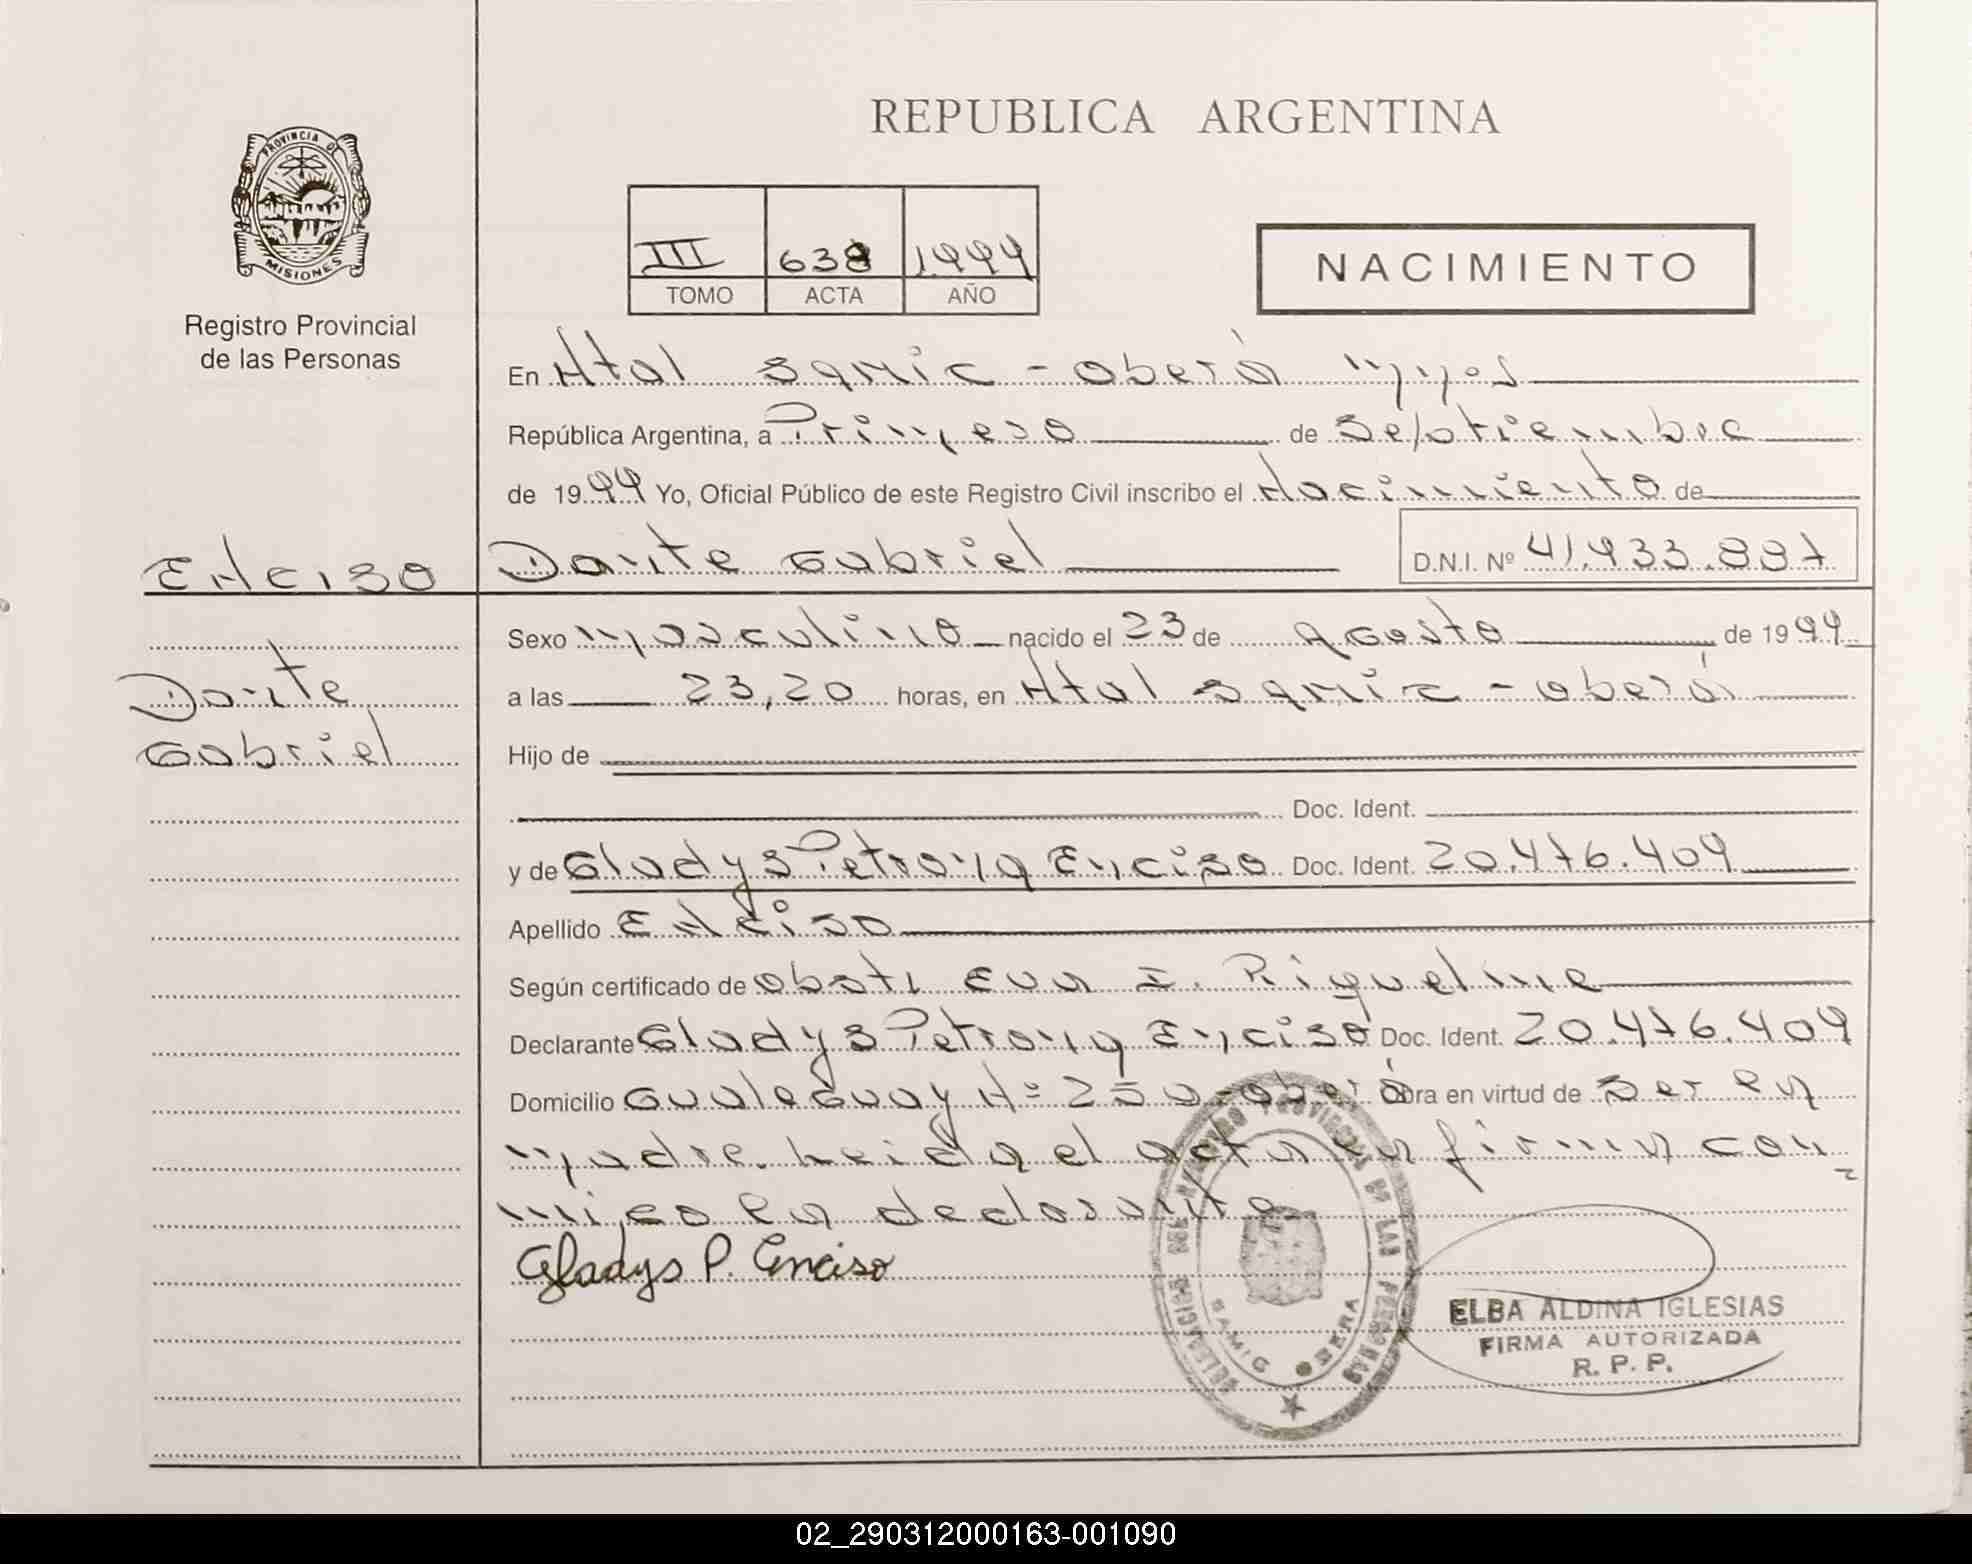 PROVINCIA DE
MISIONES
Registro Provincial
de las Personas
REPUBLICA ARGENTINA
III 638 1.994
TOMO ACTA AÑO
NACIMIENTO
En Htal Samic - Oberá Mnes
República Argentina, a Primero de Septiembre
de 1994 Yo, Oficial Público de este Registro Civil inscribo el Nacimiento de
Enciso
Dante Gabriel D.N.I. Nº
Dante
Gabriel
Sexo Masculino nacido el 23 de Agosto de 1994
a las 23,20 horas, en Htal Samic - Oberá
Hijo de
Doc. Ident.
y de Gladys Petrona Enciso Doc. Ident. 20.476.409
Apellido Enciso
Según certificado de Obst. Eva I. Riquelme
Declarante Gladys Petrona Enciso Doc. Ident. 20.476.409
Domicilio Gualeguay Nº 250 - Oberá Obra en virtud de Ser la
madre. Leida el acta la firma con-
migo la declarante
Gladys P. Enciso
DELEGACION DEL REGISTRO PROVINCIAL DE LAS PERSONAS
SAMIC OBERA
ELBA ALDINA IGLESIAS
FIRMA AUTORIZADA
R. P. P.
02_290312000163-001090